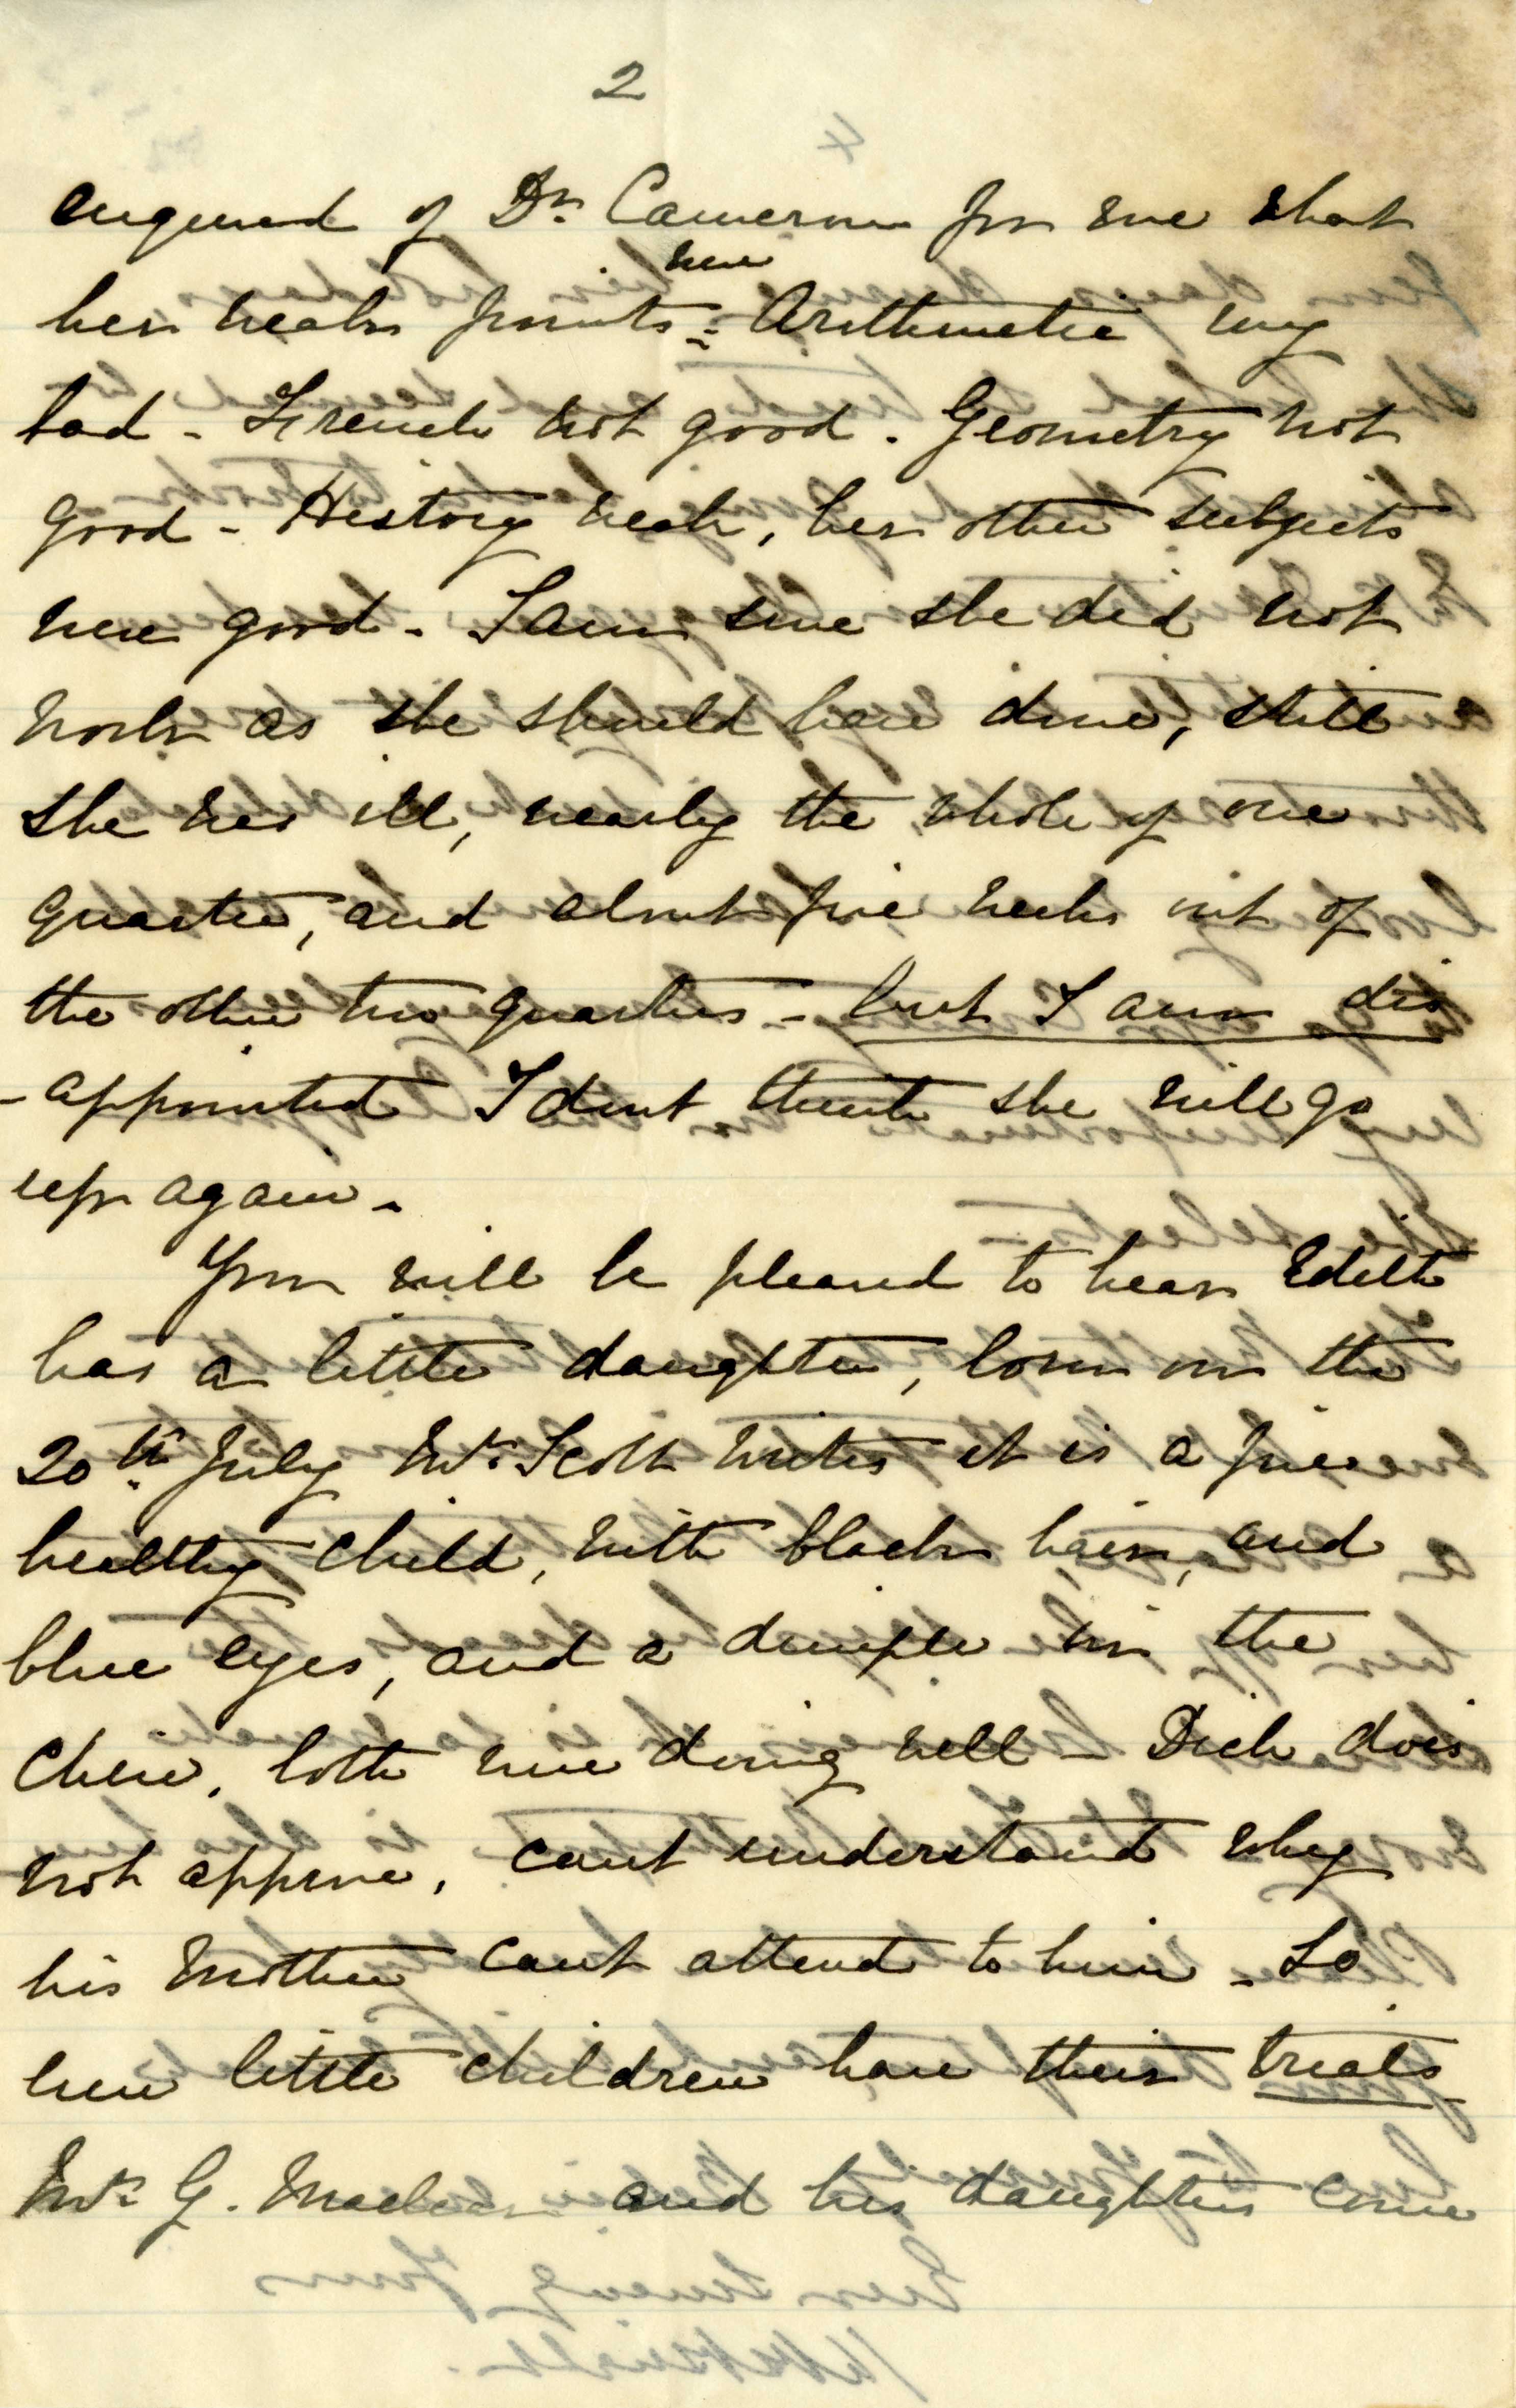 2
enquired of Dr. Cameron for me what
were
her weak points: Arithmetic very
bad - French not good. Geometry not
good - History weak, her other subjects
were good - I am sure she did not
work as she should have done, still
she was ill, nearly the whole of one
quarter, and about five weeks out of
the other two quarters - but I am dis
-appointed I dont think she will go
up again -
You will be pleased to hear Edith
has a little daughter, born on the
20th July Mr. Scott writes it is a fine
healthy child, with black hair, and
blue eyes, and a dimple in the
chin, both were doing well - Dick does
not approve, cant understand why
his mother cant attend to him - So
even little children have their trials
Mr. G. Maclean and his daughters come